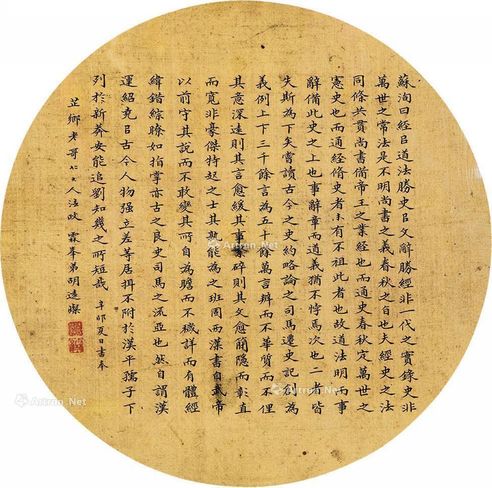 蘇洵曰經㠯道法勝史㠯文辭勝經非一代之實錄史非
萬世之常法是不明尚書之義春秋之旨也夫經史之法
同條共貫尚書備帝王之業經也而通史春秋定萬世之
憲史也而通經脩史者未有不祖此者也故道法明而事
辭備此史之上也事辭章而道義猶不悖焉次也二者皆
失斯為下矣嘗讀古今之史約略論之司馬遷史記設為
義例上下三千餘言為五十餘萬言辨而不華質而不俚
其意深遠則其言愈緩其事繁碎則其文愈簡隱而彰直
而寬非豪傑特起之士其孰能為之班固西漢書自武帝
以前守其說而不敢變其所自為贍而不穢詳而有體經
緯錯綜瞭如指掌亦古之良史司馬之流亞也然自謂漢
運紹堯㠯古今人物强立差等居揖不附於漢平孺子下
列於新莽安能追劉知幾之所短哉 辛卯夏日書奉
芷鄉老哥大人法政 霖峯弟胡遠燦
Artron.Net
Artron.Net
Artron.Net
Artron.Net